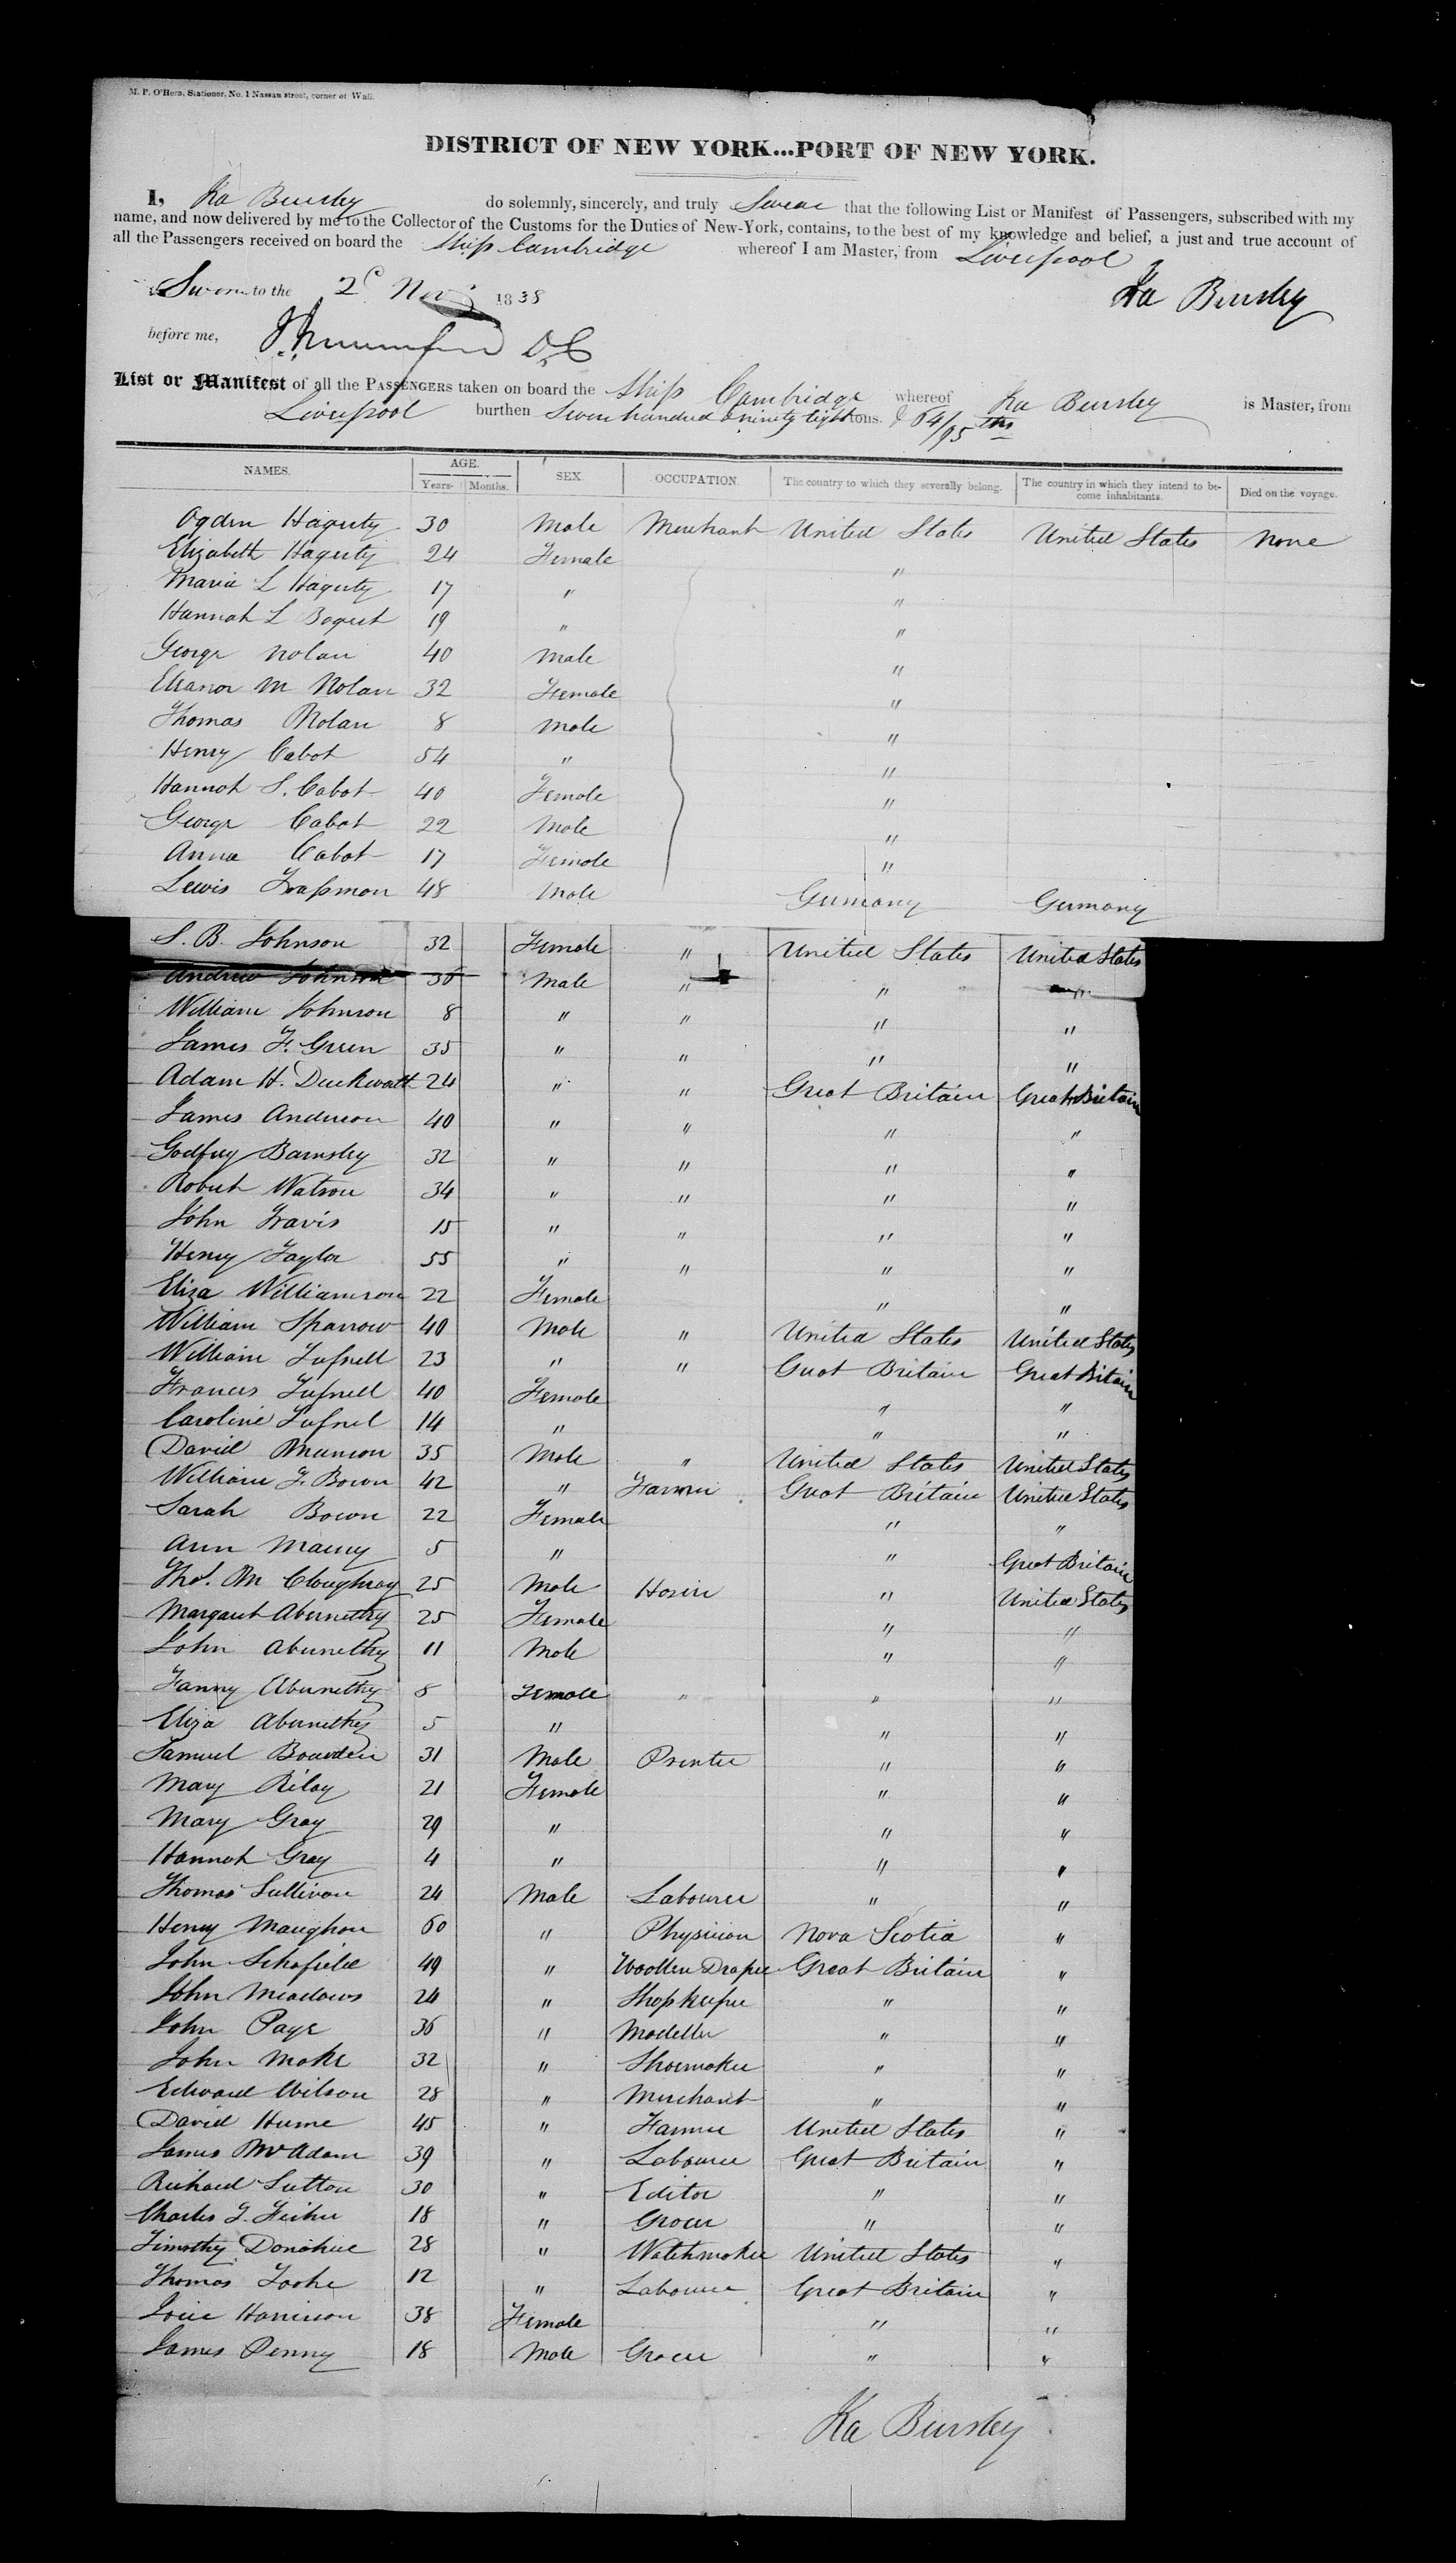 M. P. O'Hern, Stationer, No. 1 Nassau street, corner of Wall.
DISTRICT OF NEW YORK...PORT OF NEW YORK.
I, Ira Bursley do solemnly, sincerely, and truly Swear that the following List or Manifest of Passengers, subscribed with my
name, and now delivered by me to the Collector of the Customs for the Duties of New-York, contains, to the best of my knowledge and belief, a just and true account of
all the Passengers received on board the Ship Cambridge whereof I am Master, from Liverpool
Sworn to the 2d Nov 1838 Ira Bursley
before me, D C
List or Manifest of all the PASSENGERS taken on board the Ship Cambridge whereof Ira Bursley is Master, from
Liverpool burthen Seven hundred & ninety eight tons. & 64/95 ths
NAMES. AGE. SEX. OCCUPATION. The country to which they severally belong. The country in which they intend to become inhabitants. Died on the voyage.
Years. Months.
Ogden Hagerty 30 Male Merchant United States United States None
Elizabeth Hagerty 24 Female "
Maria L Hagerty 17 " "
Hannah L Bogert 19 " "
George Nolan 40 Male "
Eleanor M Nolan 32 Female "
Thomas Nolan 8 Male "
Henry Cabot 54 " "
Hannah S. Cabot 40 Female "
George Cabot 22 Male "
Anna Cabot 17 Female "
Lewis Trapmon 48 Male Germany Germany
S. B. Johnson 32 Female " United States United States
Andrew Johnson 36 Male " " "
William Johnson 8 " " " "
James F. Green 35 " " " "
Adam H. Duckworth 24 " " Great Britain Great Britain
James Anderson 40 " " " "
Godfrey Barnsley 32 " " " "
Robert Watson 34 " " " "
John Travis 15 " " " "
Henry Taylor 55 " " " "
Eliza Williamson 22 Female " "
William Sparrow 40 Male " United States United States
William Tufnell 23 " " Great Britain Great Britain
Frances Tufnell 40 Female " "
Caroline Tufnel 14 " " "
David Munson 35 Male " United States United States
William F. Bown 42 " Farmer Great Britain United States
Sarah Bown 22 Female " "
Ann Maury 5 " " Great Britain
Thos. M Cloughray 25 Male Hosier " United States
Margaret Abernethy 25 Female " "
John Abernethy 11 Male " "
Fanny Abernethy 8 Female " " "
Eliza Abernethy 5 " " "
Samuel Bowden 31 Male Printer " "
Mary Riley 21 Female " "
Mary Gray 29 " " "
Hannah Gray 4 " " "
Thomas Sullivan 24 Male Labourer " "
Henry Maughon 60 " Physician Nova Scotia "
John Schofield 49 " Woollen Draper Great Britain "
John Meadows 24 " Shopkeeper " "
John Page 36 " Modeller " "
John Moke 32 " Shoemaker " "
Edward Wilson 28 " Merchant " "
David Hume 45 " Farmer United States "
James McAdam 39 " Labourer Great Britain "
Richard Sutton 30 " Editor " "
Charles J. Fisher 18 " Grocer " "
Timothy Donohue 28 " Watchmaker United States "
Thomas Tooke 12 " Labourer Great Britain "
Harrison 38 Female " "
James Penny 18 Male Grocer " "
Ira Bursley